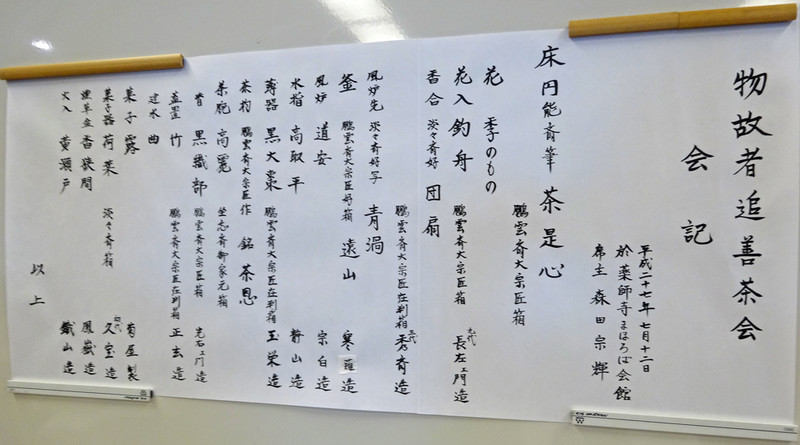 物故者追善茶会
会記
平成二十七年七月十二日
於薬師寺まほろば会館
席主 森田宗輝
床 円能斎筆 茶是心
鵬雲斎大宗匠箱
花 季のもの
花入 釣舟 鵬雲斎大宗匠在判箱 九代 長左ェ門造
香合 淡々斎好 団扇
鵬雲斎大宗匠在判箱 五代
風炉先 淡々斎好写 青渦
釜 鵬雲斎大宗匠好箱 遠山 寒雉造
風炉 道安 宗白造
水指 高取 平 静山造
薄器 黒大棗 鵬雲斎大宗匠在判箱 玉栄造
茶杓 鵬雲斎大宗匠作 銘 茶恩
茶碗 高麗 坐忘斎御家元箱
替 黒織部 鵬雲斎大宗匠箱 光右ェ門造
蓋置 竹 鵬雲斎大宗匠在判箱 正玄造
建水 曲
菓子 露 菊屋製
菓子器 荷葉 淡々斎箱 初代 久宝造
煙草盆 香狭間 鳳嶽造
火入 黄瀬戸 鐵山造
以上